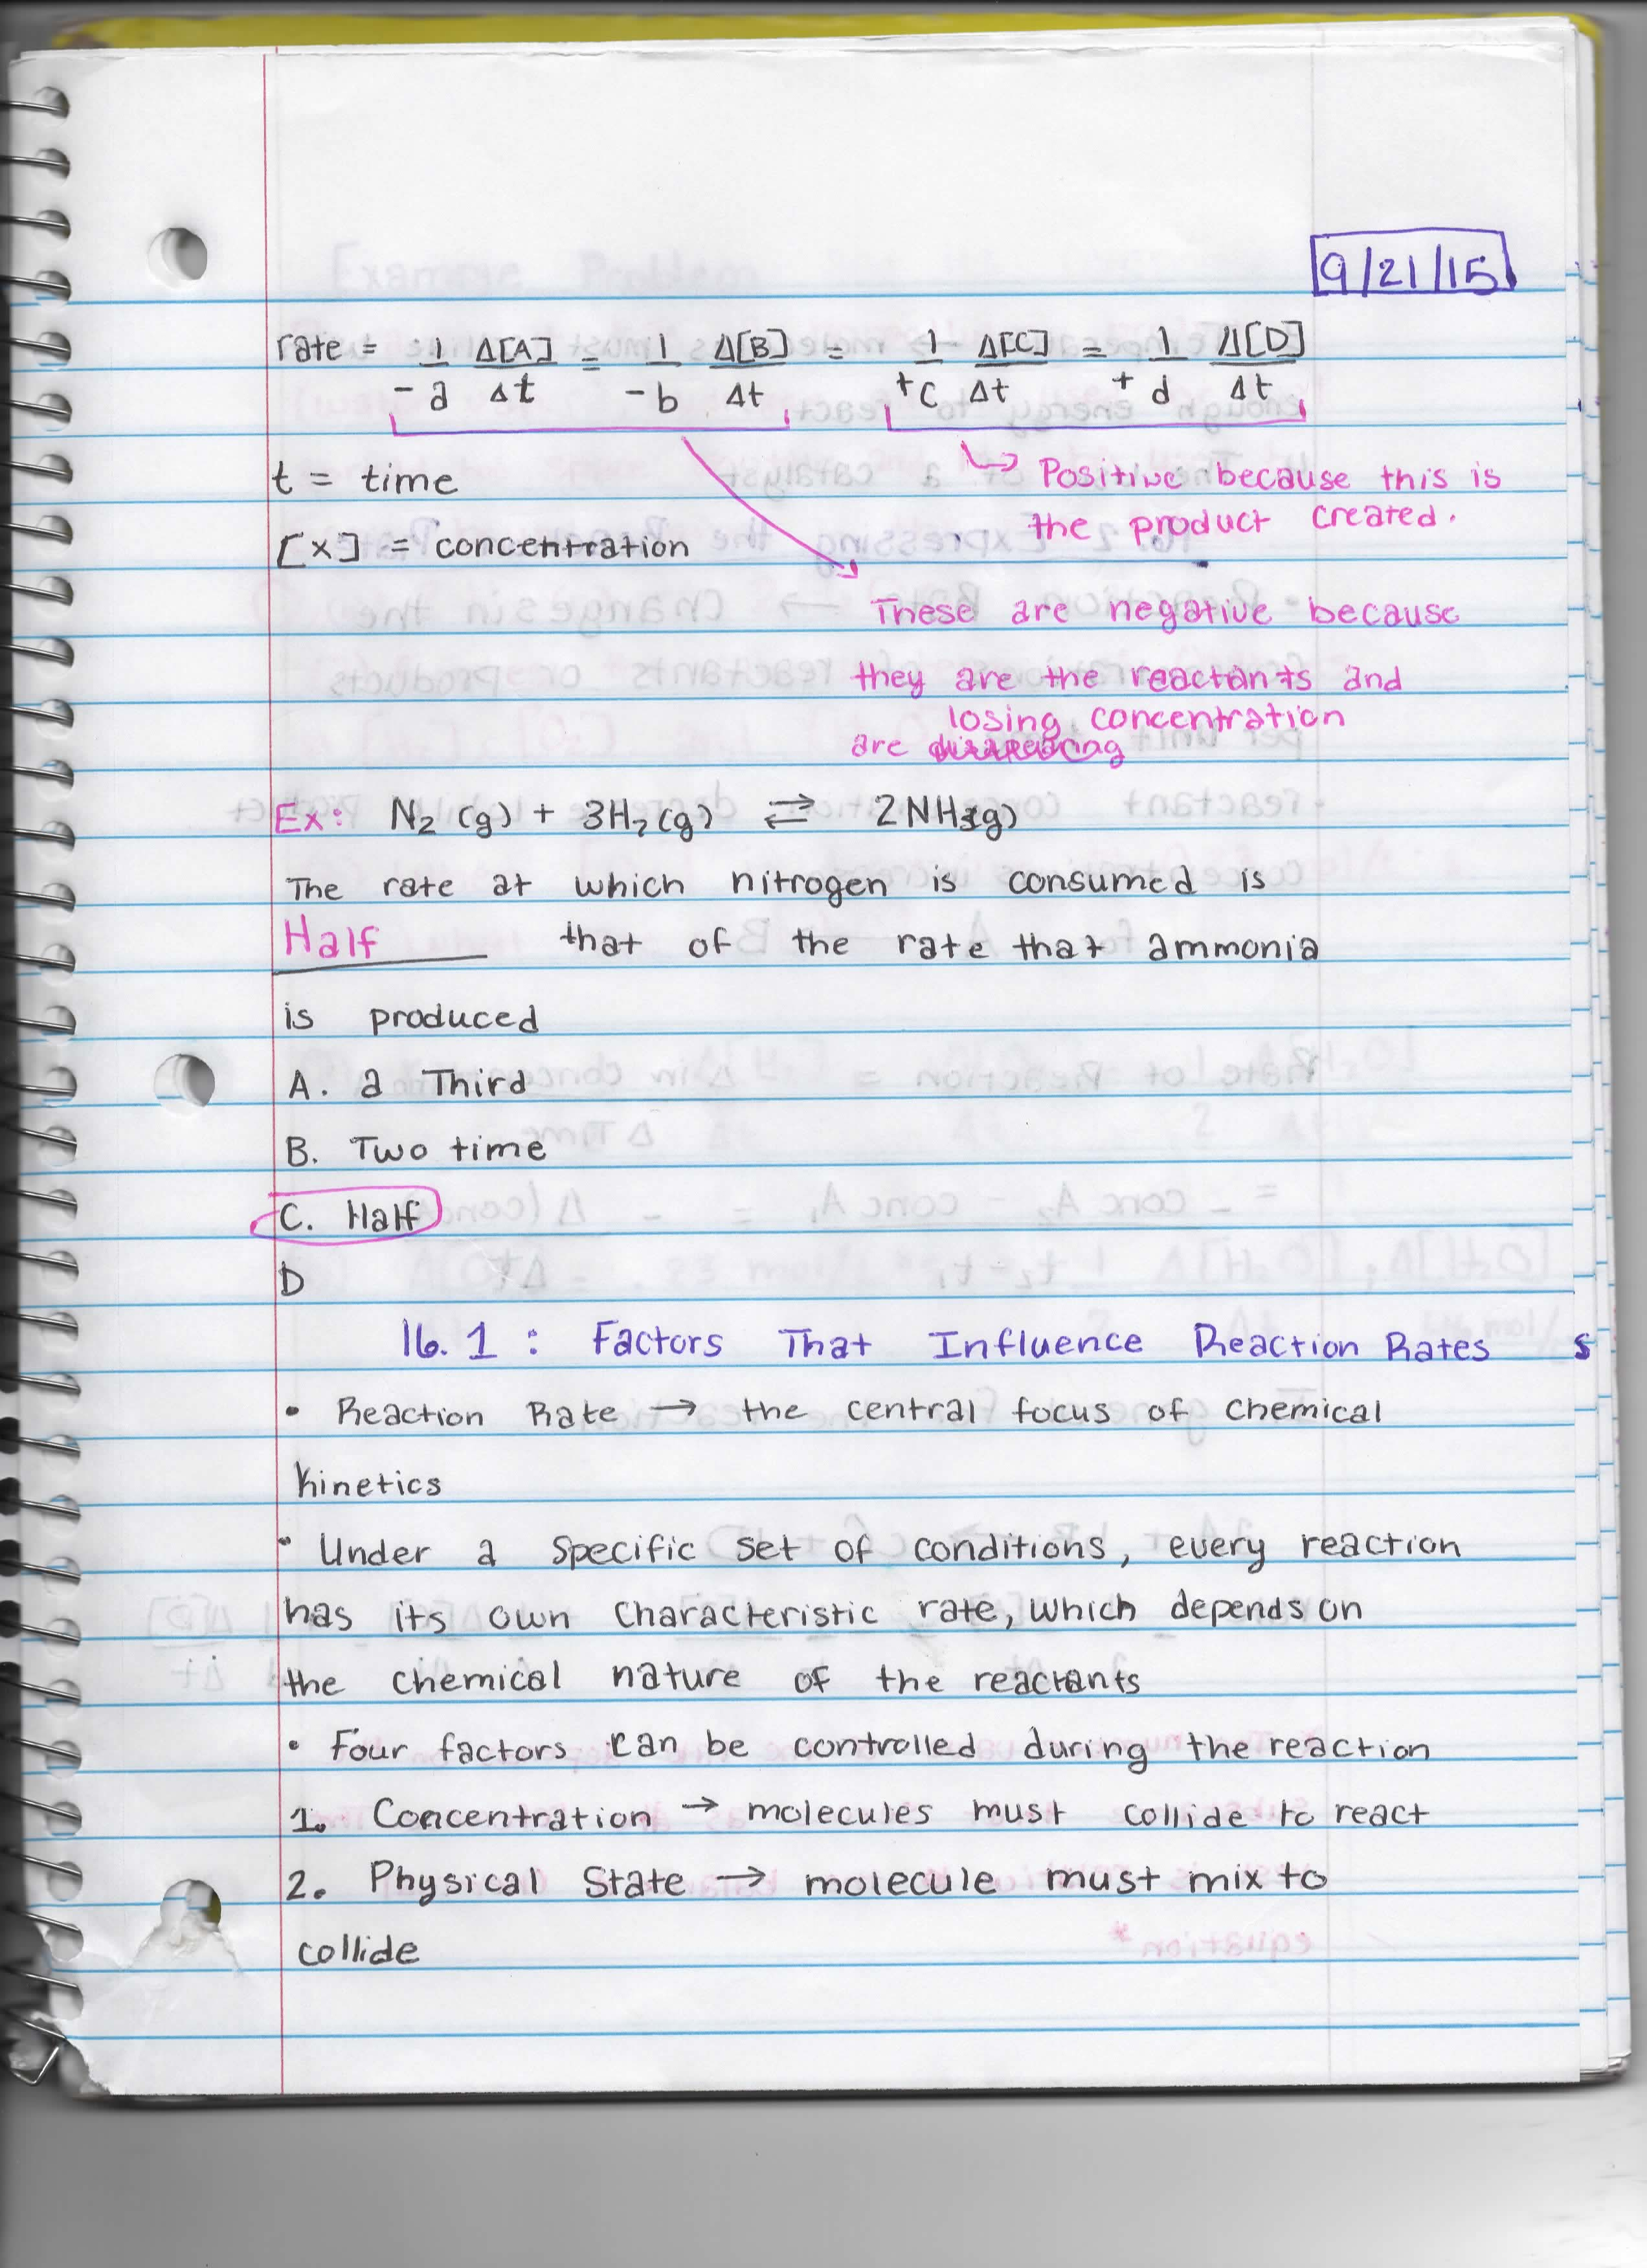 9/21/15
rate = 1/-a Δ[A]/Δt = 1/-b Δ[B]/Δt = 1/+c Δ[C]/Δt = 1/+d Δ[D]/Δt
t = time
[x] = concentration
↳ Positive because this is
the product created.
These are negative because
they are the reactants and
losing concentration
are
Ex: N2 (g) + 3H2 (g) ⇄ 2NH3(g)
The rate at which nitrogen is consumed is
Half that of the rate that ammonia
is produced
A. a Third
B. Two time
C. Half
D
16.1 : Factors That Influence Reaction Rates
• Reaction Rate → the central focus of chemical
kinetics
• Under a specific set of conditions, every reaction
has its own characteristic rate, which depends on
the chemical nature of the reactants
• Four factors can be controlled during the reaction
1. Concentration → molecules must collide to react
2. Physical State → molecule must mix to
collide